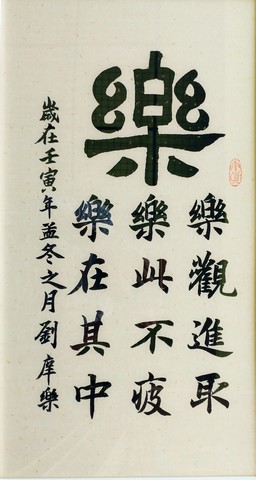 樂
樂觀進取
樂此不疲
樂在其中
歲在壬寅年孟冬之月劉庠樂